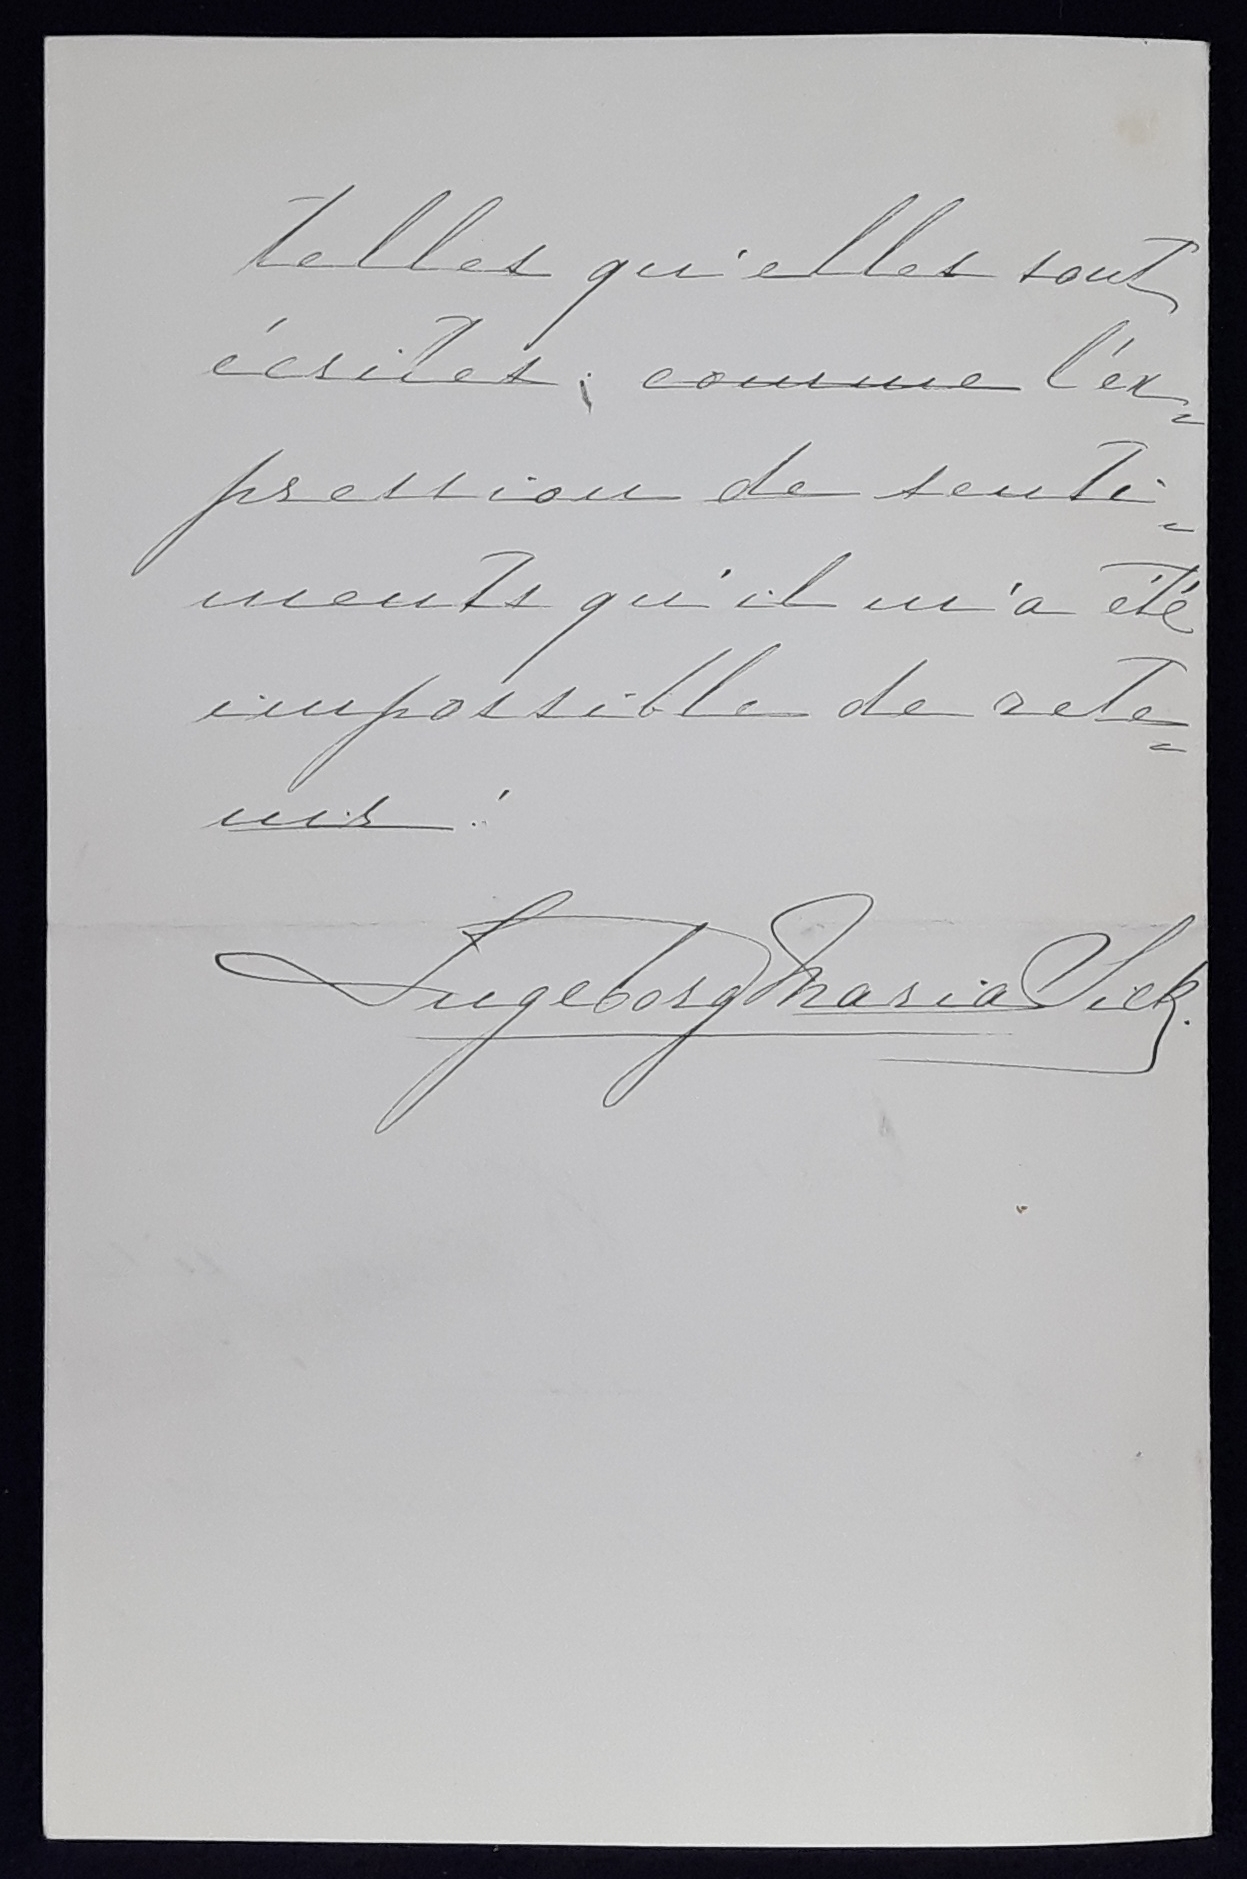 telles qu'elles sont
écrites; comme l'ex=
pression de senti=
ments qu'il m'a été
impossible de rete=
nir!
Ingeborg Maria Sick.